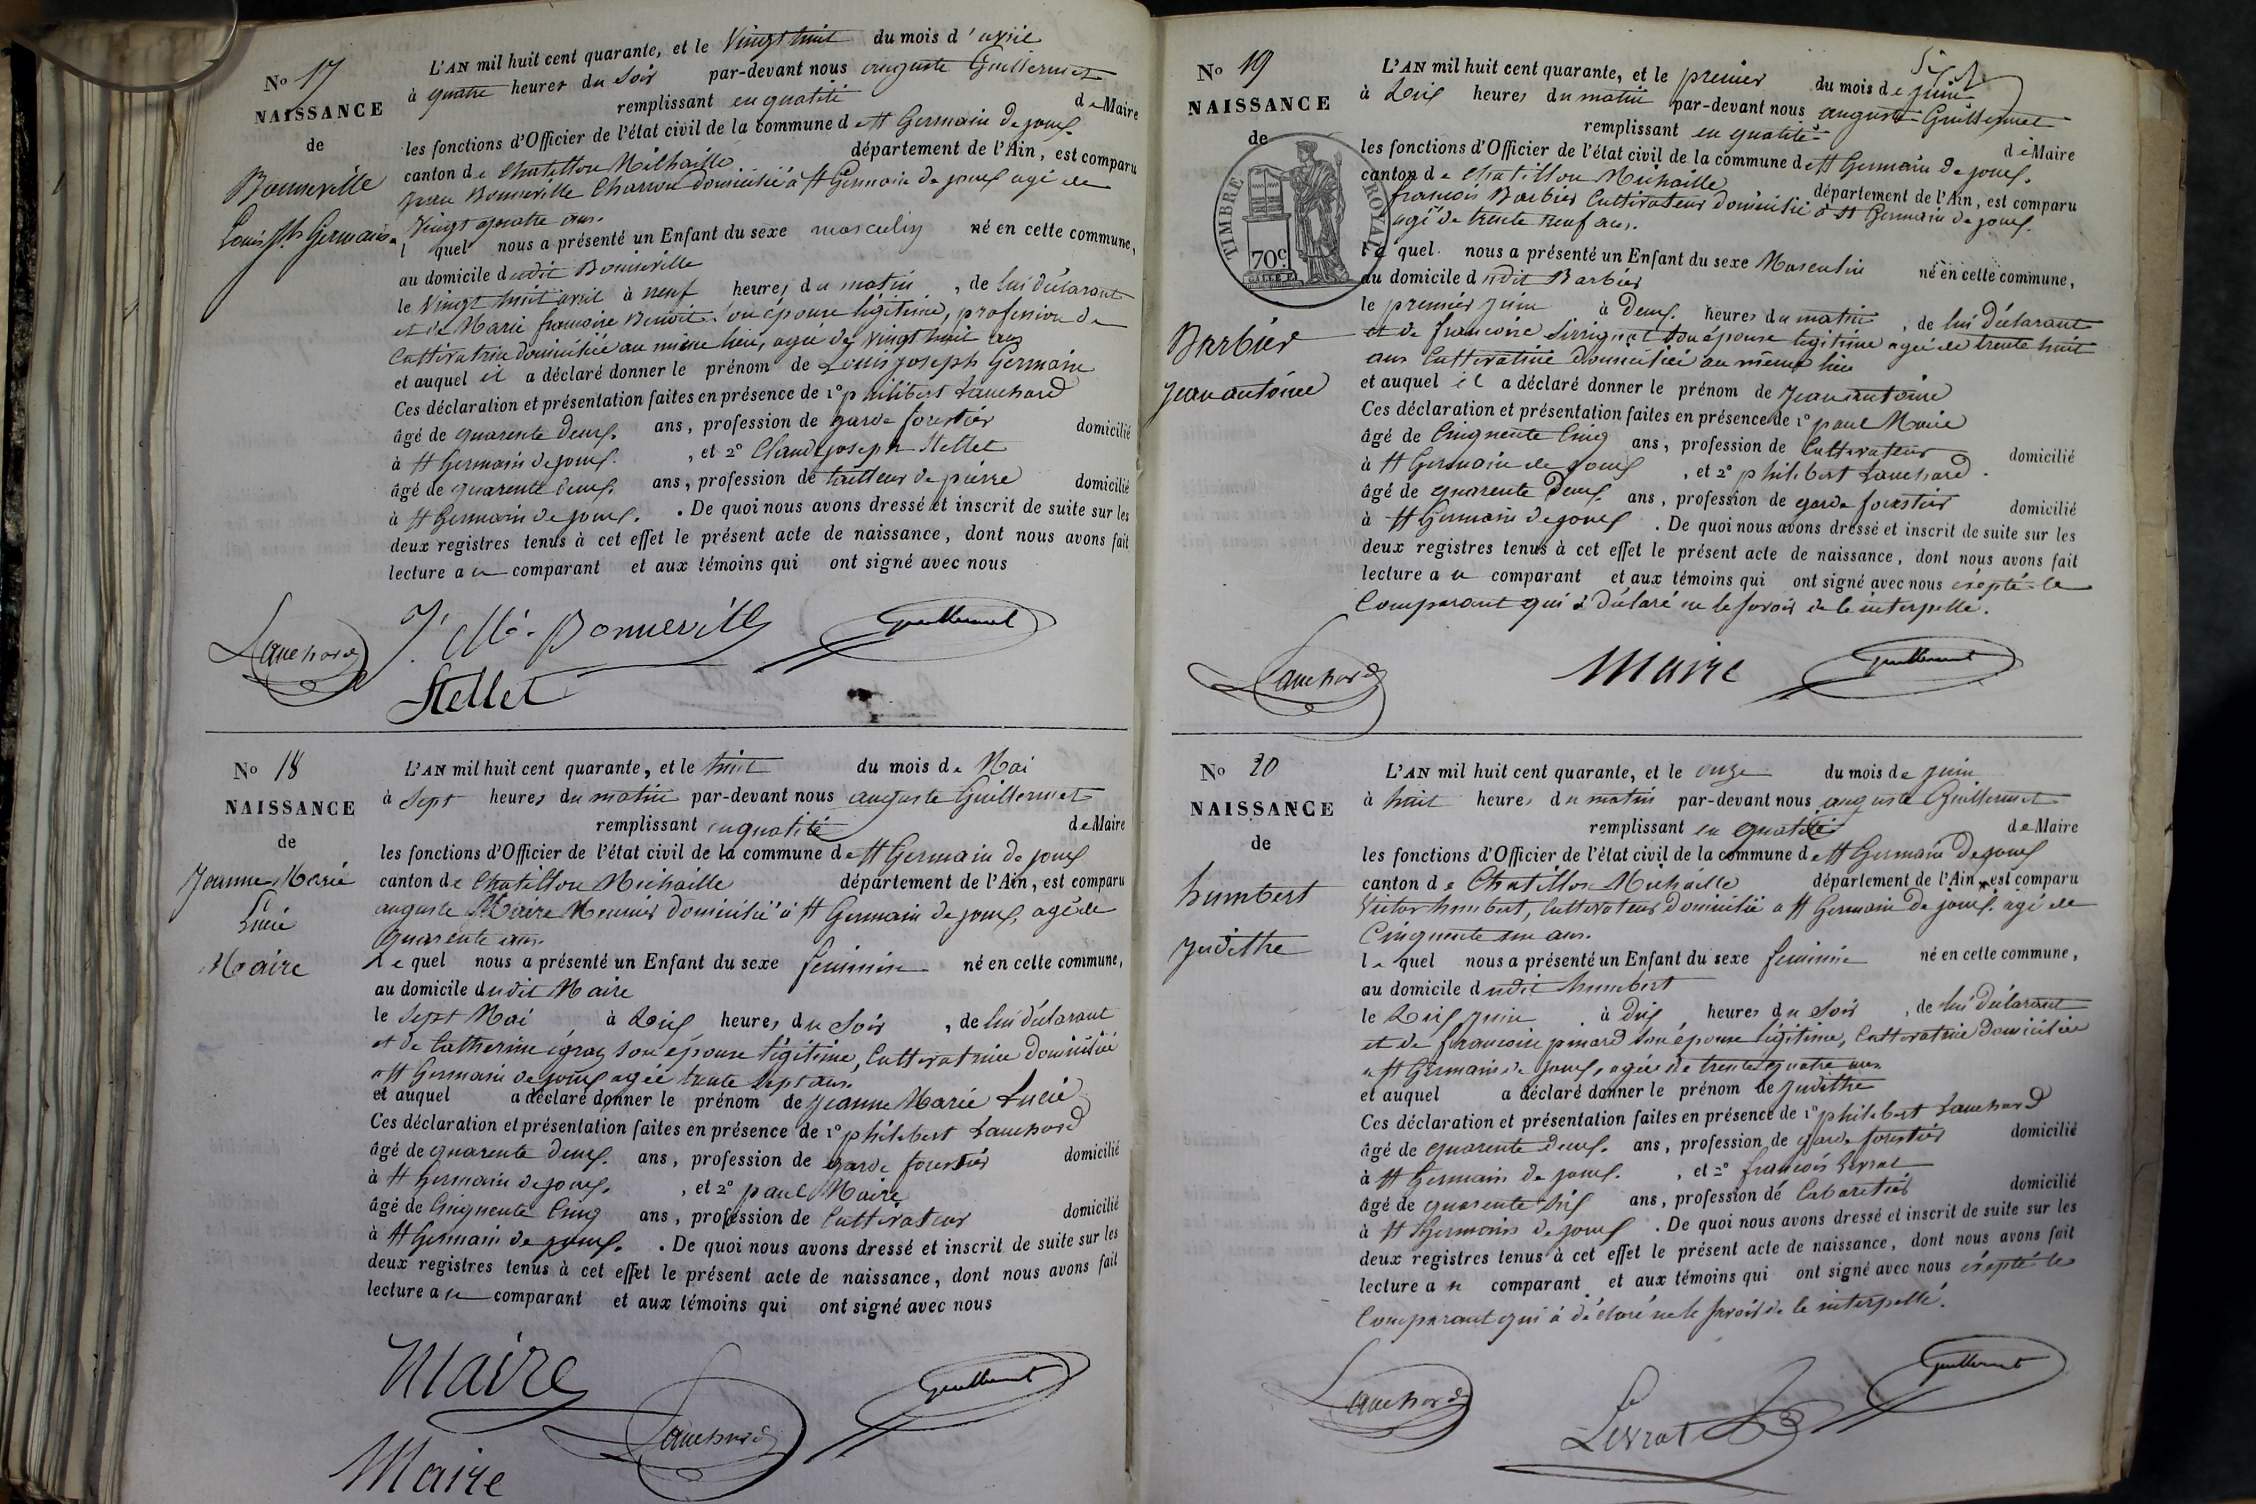 No 17
NAISSANCE
de
Bonneville
Louis Jph Germain
L'AN mil huit cent quarante, et le Vingt huit du mois d'avril
à quatre heures du Soir par-devant nous auguste Guillermet
remplissant en qualité de Maire
les fonctions d'Officier de l'état civil de la commune de St Germain de joux
canton de Chatillon Michaille département de l'Ain, est comparu
Bonneville Charron domicilié à St Germain de joux agé de
Vingt quatre ans.
l quel nous a présenté un Enfant du sexe masculin né en cette commune,
au domicile dudit Bonneville
le Vingt huit avril à neuf heures du matin, de lui déclarant
et de Marie francoise Benoit son épouse légitime, profession de
Cultivatrice domiciliée au même lieu, agée de Vingt huit ans
et auquel il a déclaré donner le prénom de Louis joseph Germain
Ces déclaration et présentation faites en présence de 1º philibert Lanchard
âgé de quarente deux. ans, profession de garde forestier domicilié
à St Germain de joux. , et 2º Claude joseph Stellet
âgé de quarente deux. ans, profession de tailleur de pierre domicilié
à St Germain de joux. . De quoi nous avons dressé et inscrit de suite sur les
deux registres tenus à cet effet le présent acte de naissance, dont nous avons fait
lecture au comparant et aux témoins qui ont signé avec nous
Lanchard Bonneville Guillermet
Stellet
No 18
NAISSANCE
de
Jeanne Marie
Lucie
Maire
L'AN mil huit cent quarante, et le huit du mois de Mai
à Sept heures du matin par-devant nous auguste Guillermet
remplissant en qualité de Maire
les fonctions d'Officier de l'état civil de la commune de St Germain de joux
canton de Chatillon Michaille département de l'Ain, est comparu
auguste Maire Meunier domicilié à St Germain de joux, agé de
quarente ans.
Le quel nous a présenté un Enfant du sexe feminin né en cette commune,
au domicile dudit Maire
le Sept Mai à Dix heures du Soir, de lui déclarant
et de Catherine égraz son épouse légitime, Cultivatrice domiciliée
a St Germain de joux agée trente sept ans.
et auquel a déclaré donner le prénom de jeanne Marie Lucie
Ces déclaration et présentation faites en présence de 1º philibert Lanchard
âgé de quarente deux. ans, profession de garde forestier domicilié
à St Germain de joux. , et 2º paul Maire
âgé de Cinquente Cinq ans, profession de Cultivateur domicilié
à St Germain de joux. . De quoi nous avons dressé et inscrit de suite sur les
deux registres tenus à cet effet le présent acte de naissance, dont nous avons fait
lecture au comparant et aux témoins qui ont signé avec nous
Maire Lanchard Guillermet
Maire
No 19
NAISSANCE
de
TIMBRE ROYAL
70c.
Barbier
jean antoine
L'AN mil huit cent quarante, et le premier du mois de juin
à Dix heures du matin par-devant nous auguste Guillermet
remplissant en qualité de Maire
les fonctions d'Officier de l'état civil de la commune de St Germain de joux.
canton de Chatillon Michaille département de l'Ain, est comparu
francois Barbier Cultivateur domicilié à St Germain de joux.
agé de trente neuf ans.
le quel nous a présenté un Enfant du sexe Masculin né en cette commune,
au domicile dudit Barbier
le premier juin à Deux. heures du matin, de lui déclarant
et de francoise son épouse légitime agée de trente huit
ans Cultivatrice domiciliée au même lieu
et auquel il a déclaré donner le prénom de jean antoine
Ces déclaration et présentation faites en présence de 1º paul Maire
âgé de Cinquente Cinq ans, profession de Cultivateur domicilié
à St Germain de joux , et 2º philibert Lanchard.
âgé de quarente Deux. ans, profession de garde forestier domicilié
à St Germain de joux . De quoi nous avons dressé et inscrit de suite sur les
deux registres tenus à cet effet le présent acte de naissance, dont nous avons fait
lecture au comparant et aux témoins qui ont signé avec nous éxépté le
Comparant qui à déclaré ne le savoir de le interpellé.
Lanchard Maire Guillermet
No 20
NAISSANCE
de
humbert
judithe
L'AN mil huit cent quarante, et le onze du mois de juin
à huit heures du matin par-devant nous auguste Guillermet
remplissant en qualité de Maire
les fonctions d'Officier de l'état civil de la commune de St Germain de joux
canton de Chatillon Michaille département de l'Ain, est comparu
Victor humbert, Cultivateur domicilié a St Germain de joux. agé de
Cinquente un ans.
le quel nous a présenté un Enfant du sexe feminin né en cette commune,
au domicile dudit humbert
le Dix juin à Dix heures du Soir, de lui déclarant
et de francoise pinard son épouse légitime, Cultivatrice domiciliée
a St Germain de joux, agée de trente quatre ans
et auquel a déclaré donner le prénom de judithe
Ces déclaration et présentation faites en présence de 1º philibert Lanchard
âgé de quarente deux. ans, profession de garde forestier domicilié
à St Germain de joux. , et 2º francois Levrat
âgé de quarente Six ans, profession de Cabaretier domicilié
à St Germain de joux . De quoi nous avons dressé et inscrit de suite sur les
deux registres tenus à cet effet le présent acte de naissance, dont nous avons fait
lecture au comparant et aux témoins qui ont signé avec nous éxépté le
Comparant qui à déclaré ne le savoir de le interpellé.
Lanchard Levrat Guillermet